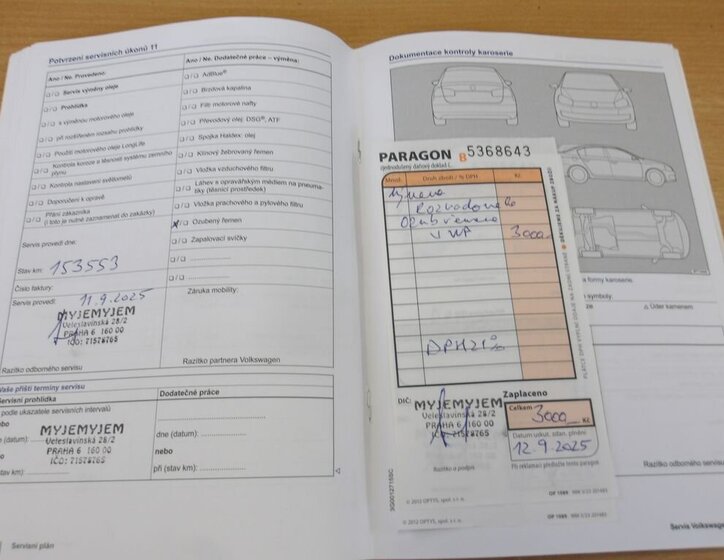 Potvrzení servisních úkonů 11
Ano / Ne. Provedeno:
Servis výměny oleje
Prohlídka
s výměnou motorového oleje
při rozšířeném rozsahu prohlídky
Použití motorového oleje LongLife
Kontrola koroze a těsnosti systému zemního plynu
Kontrola nastavení světlometů
Doporučení k opravě
Přání zákazníka
(i toto je nutné zaznamenat do zakázky)
Servis provedl dne:
Stav km: 153553
Číslo faktury:
Servis provedl: 11.9.2025
MYJEMYJEM
Veleslavínská 28/2
PRAHA 6 160 00
IČO: 71578765
Razítko odborného servisu
Ano / Ne. Dodatečné práce – výměna:
AdBlue®
Brzdová kapalina
Filtr motorové nafty
Převodový olej: DSG®, ATF
Spojka Haldex: olej
Klínový žebrovaný řemen
Vložka vzduchového filtru
Láhev s opravářským médiem na pneumatiky (těsnicí prostředek)
Vložka prachového a pylového filtru
Ozubený řemen
Zapalovací svíčky
Záruka mobility:
Razítko partnera Volkswagen
Vaše příští termíny servisu
Servisní prohlídka
podle ukazatele servisních intervalů
nebo
dne (datum):
nebo
při (stav km):
MYJEMYJEM
Veleslavínská 28/2
PRAHA 6 160 00
IČO: 71578765
Dodatečné práce
dne (datum):
nebo
při (stav km):
Servisní plán
Dokumentace kontroly karoserie
PARAGON B 5368643
zjednodušený daňový doklad č.
Množ. Druh zboží / % DPH Kč
Výměna
Rozvodového
VW 3000
DPH 21%
DĚKUJEME ZA NÁKUP ZBOŽÍ
Zaplaceno
DIČ:
MYJEMYJEM
Veleslavínská 28/2
PRAHA 6 160 00
IČO: 71578765
Celkem 3000 Kč
Datum uskut. zdan. plnění
12.9.2025
Razítko a podpis
Při reklamaci předložte tento paragon
© 2012 OPTYS, spol. s r. o.
OP 1089
© 2012 OPTYS, spol. s r. o.
OP 1089
formy karoserie.
symboly:
Úder kamenem
Razítko odborného servisu
Servis Volkswagen